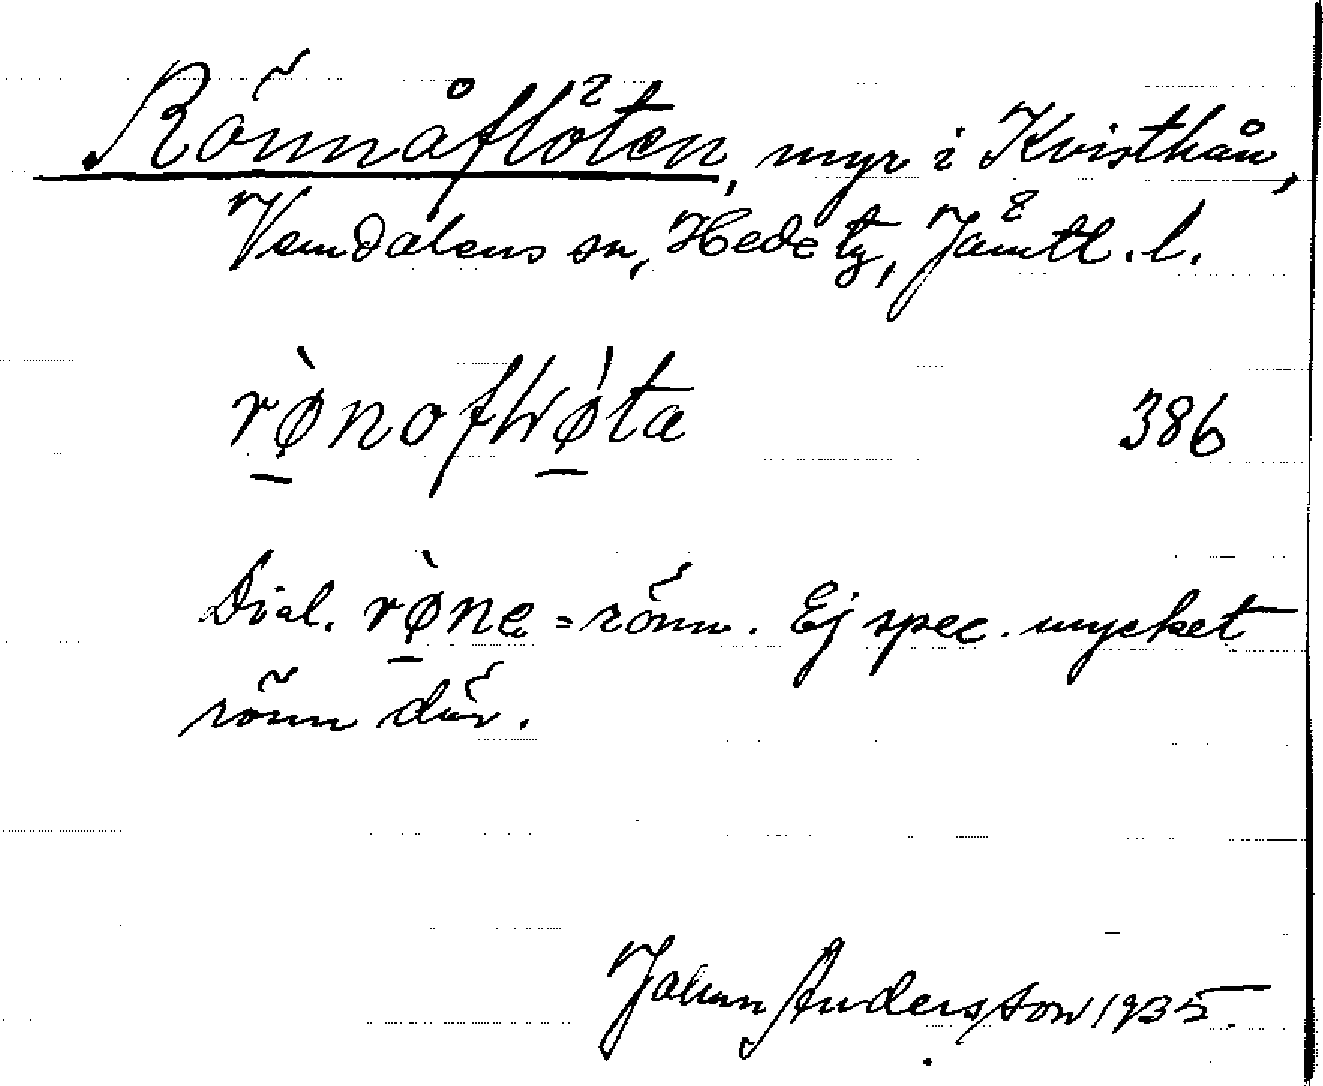 Rönnåflöten, myr i Kvisthån,
Vemdalens sn, Hede tg, Jämtl. l.
rø̀noflø̀ta 386
Dial. rø̀ne = rönn. Ej spec. mycket
rönn där.
Johan Andersson 1935.